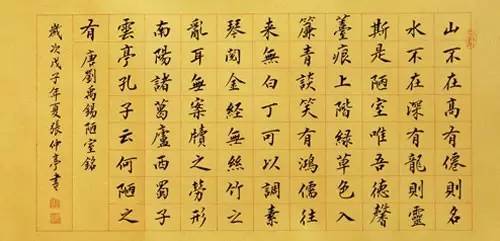 山不在高有僊則名
水不在深有龍則靈
斯是陋室唯吾德馨
薹痕上階緑草色入
簾青談笑有鴻儒往
来無白丁可以調素
琴閱金經無絲竹之
亂耳無案牘之勞形
南陽諸葛廬西蜀子
雲亭孔子云何陋之
有 唐劉禹錫陋室銘
歲次戊子年夏張仲亭書